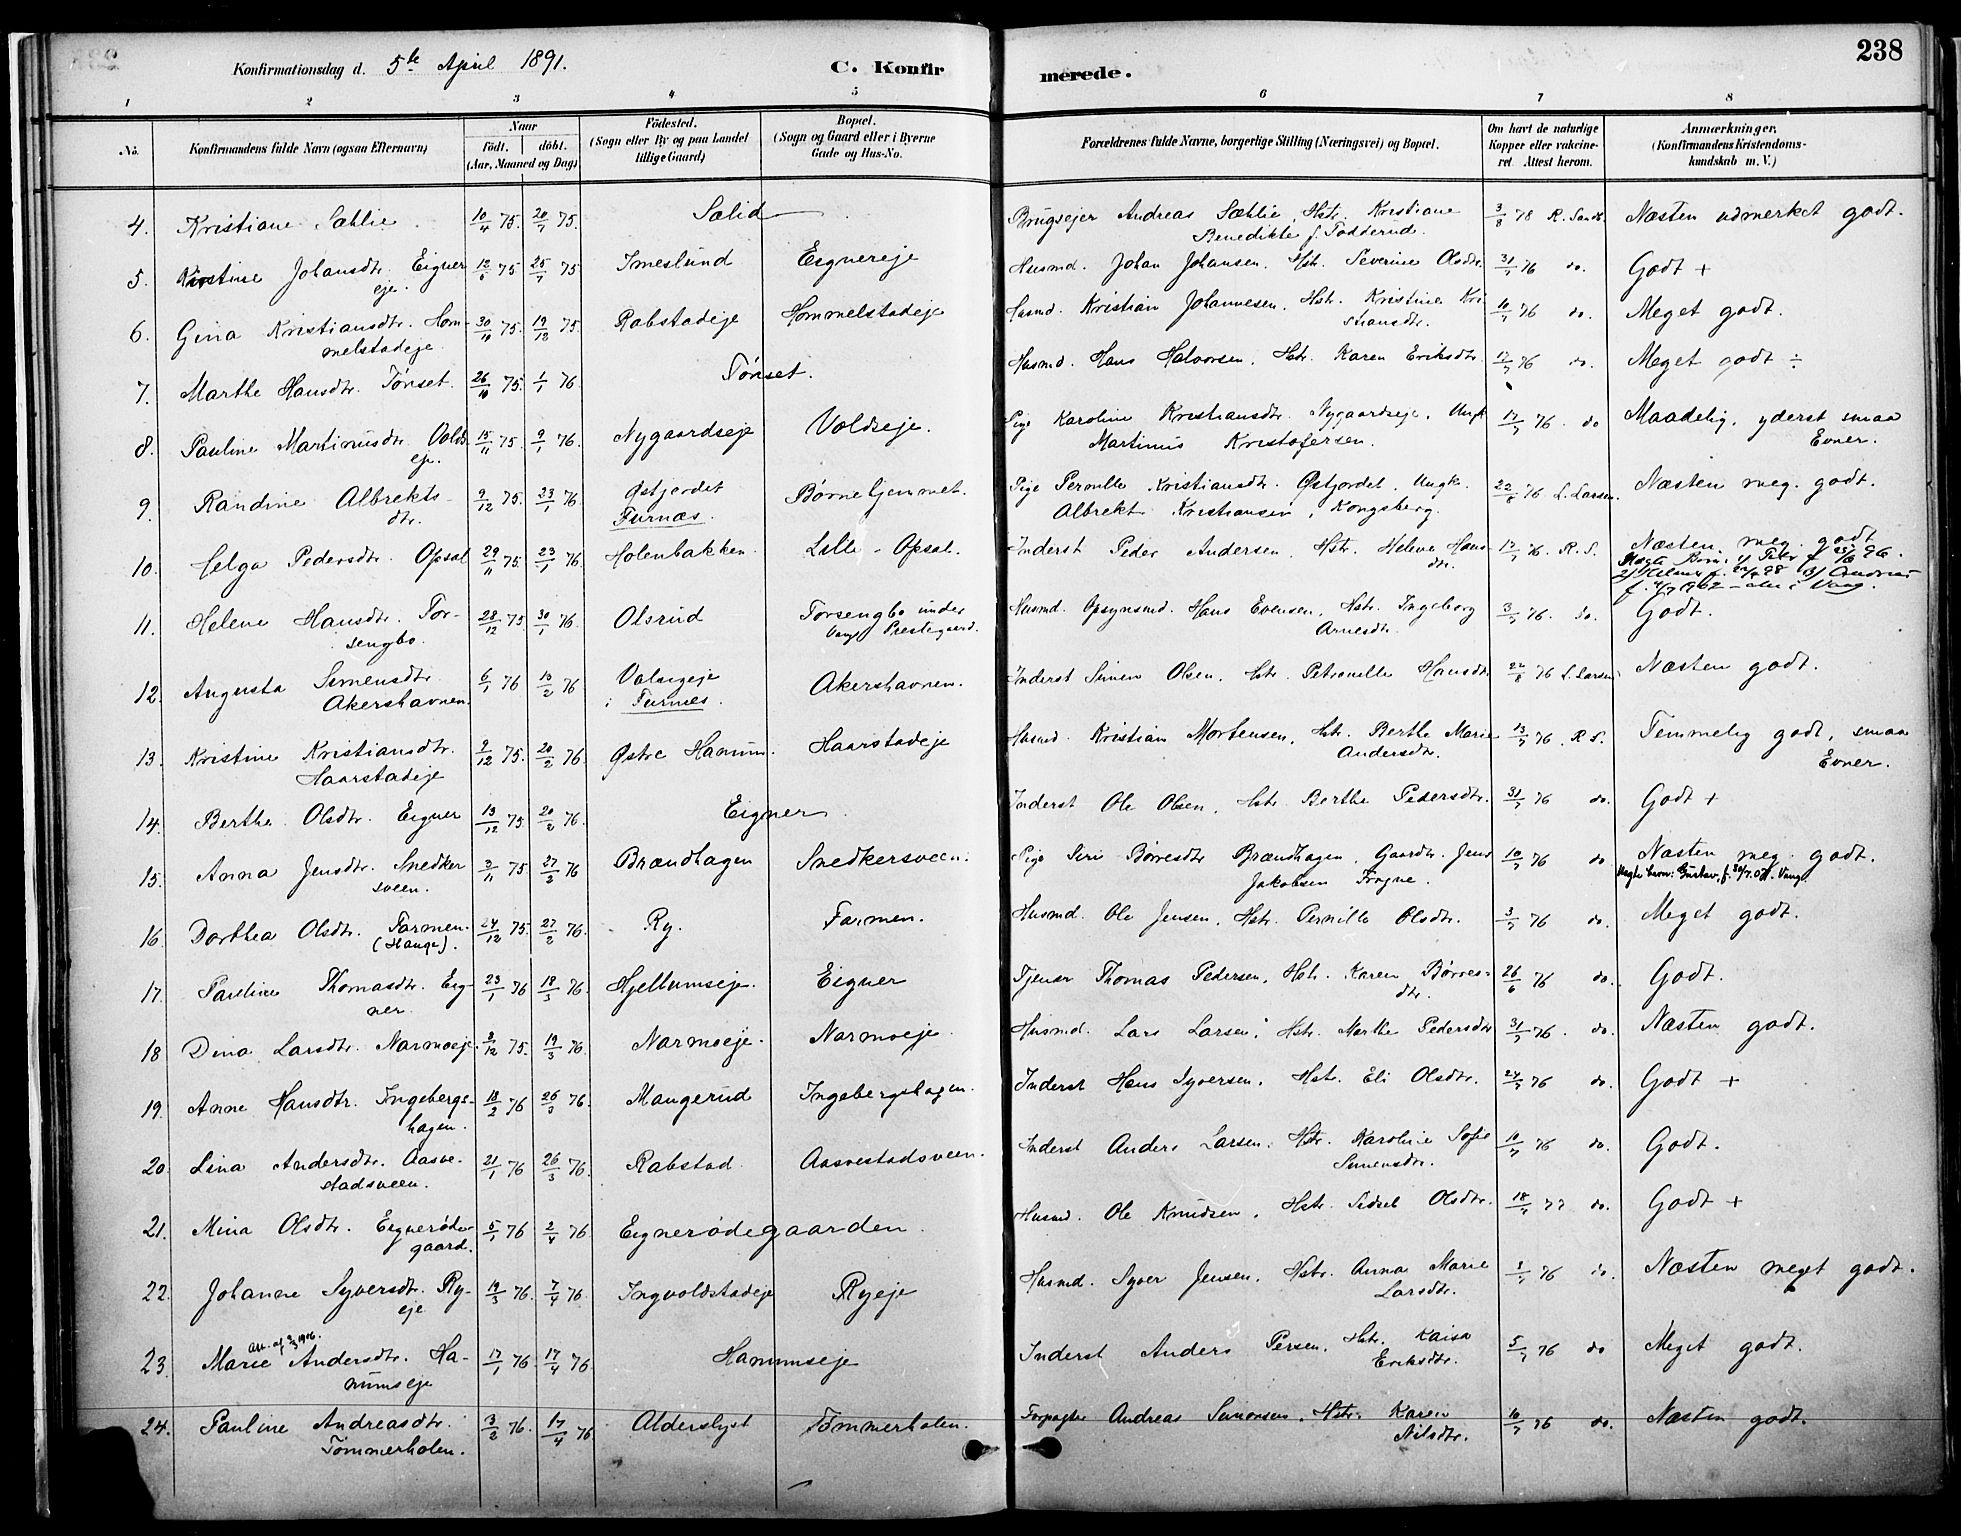 Konfirmationsdag d. 5te April 1891.
C. Konfir
merede.
238
1 2 3 4 5 6 7 8
No.
Konfirmandens fulde Navn (ogsaa Efternavn)
Naar
født. døbt.
(Aar, Maaned og Dag)
Fødested.
(Sogn eller By og paa Landet
tillige Gaard)
Bopæl.
(Sogn og Gaard eller i Byerne
Gade og Hus-No.
Forældrenes fulde Navne, borgerlige Stilling (Næringsvei) og Bopæl.
Om havt de naturlige
Kopper eller vakcine-
ret. Attest herom.
Anmærkninger.
(Konfirmandens Kristendoms-
kundskab m. V.)
4. Kristiane Sæhlie 10/4 75. 20/7 75. Sælid Brugsejer Andreas Sæhlie, Hstr. Kristiane 3/8 78 R. Sandb. Næsten udmerket godt.
Benedikte f. Todderud.
5. Kristine Johansdtr. Eigner 75 25/7 75 Imeslund Eignereje Husmd. Johan Johansen. Hstr. Severine Olsdtr. 31/7 76 do. Godt +
eje.
6. Gina Kristiansdtr. Hom- 30/10 75. 19/12 75. Rabstadeje Hommelstadeje Husmd. Kristian Johannesen. Hstr. Kristine Kri 10/7 76 do. Meget godt.
melstadeje stiansdtr.
7. Marthe Hansdtr. Tønset. 26/10 75. 1/1 76. Tønset. Husmd. Hans Halvorsen. Hstr. Karen Eriksdtr. 17/7 76 do. Meget godt ÷
8. Pauline Martinusdtr. Volds 15/11 75. 9/1 76. Nygaardseje Voldseje. Pige Karoline Kristiansdtr. Nygaardseje. Ungk. 17/7 76. do Maadelig, yderst smaa
eje. Martinus Kristofersen. Evner.
9. Randine Albrekts- 9/12 75. 23/1 76. Østjordet Børnehjemmet. Pige Pernille Kristiansdtr. Østjordet. Ungk. 22/8 76 L. Larsen. Næsten meg. godt.
dtr. Furnæs. Albrekt Kristiansen, Kongsberg.
10. Helga Pedersdtr. Opsal 29/11 75. 23/1 76 Holenbakken Lille-Opsal. Inderst Peder Andersen. Hstr. Helene Hans- 17/7 76. R. S. Næsten meg. godt
dtr.
11. Helene Hansdtr. Tor- 28/12 75 30/1 76. Olsrud Torsengbo under Husmd. Opsynsmd. Hans Evensen, Hstr. Ingeborg 3/7 76. do. Godt.
sengbo. Vang Prestegaard. Arnesdtr.
12. Augusta Simensdtr. 6/1 76 13/2 76 Valseyeje Akershavnen. Inderst Simen Olsen. Hstr. Petronelle Hansdtr 22/8 76 L. Larsen Næsten godt.
Akershavnen. i Furnæs.
13. Kristine Kristiansdtr. 9/12 75. 20/2 76. Østre Hanum. Haarstadeje Husmd. Kristian Mortensen. Hstr. Berthe Marie 13/7 76. R. S. Temmelig godt, smaa
Haarstadeje Andersdtr. Evner.
14. Berthe Olsdtr. Eigner 13/12 75 20/2 76. Eigner. Inderst Ole Olsen. Hstr. Berthe Pedersdtr. 31/7 76 do. Godt +
15. Anna Jensdtr. Snedker 3/11 75 27/2 76 Brændhagen Snedkersveen. Pige Siri Børresdtr Brændhagen, Gaardbr. Jens 10/7 76 do Næsten meg. godt.
sveen. Jakobsen Frogne. Uægte barn: Gustav, f. 30/7.07. Vang.
16. Dorthea Olsdtr. Farmen. 24/12 75. 27/2 76. Ry. Farmen. Husmd. Ole Jensen. Hstr. Pernille Olsdtr. 3/7 76 do. Meget godt.
(Hauge).
17. Pauline Thomasdtr. Eig- 23/1 76 18/3 76. Hjellumseje. Eigner Tjener Thomas Pedersen. Hstr. Karen Børres- 26/6 76 do. Godt.
ner. dtr.
18 Dina Larsdtr. Narmoeje. 75. 19/3 76. Narmoeje. Narmoeje Husmd. Lars Larsen. Hstr. Marthe Pedersdtr 31/7 76. do. Næsten godt.
19. Anne Hansdtr. Ingebergs- 18/2 76 26/3 76. Mangerud Ingebergshagen. Inderst Hans Syversen. Hstr. Eli Olsdtr. 24/7 76 do. Godt +
hagen.
20. Lina Andersdtr. Aasve- 21/1 76 26/3 76. Rabstad. Aasvestadsveen. Inderst Anders Larsen. Hstr. Karoline Sofie 10/7 76 do. Godt.
stadsveen. Simensdtr.
21. Mina Olsdtr. Eignerøde- 5/1 76 2/4 76 Eignerødegaarden Husmd. Ole Knudsen. Hstr. Sidsel Olsdtr. 18/7 77 do. Godt +
gaard.
22. Johanne Syversdtr. Ry- 19/3 76. 7/4 76. Ingvoldstadeje Ryeje Husmd. Syver Jensen. Hstr. Anna Marie 76 do. Næsten meget godt.
eje Larsdtr.
23. Marie Andersdtr. Ha- 17/1 76. 17/4 76 Hanumseje Inderst Anders Persen. Hstr. Kaisa 5/7 76 do Meget godt.
numseje Eriksdtr.
24. Pauline Andreasdtr. 3/2 76. 17/4 76 Alderslyst Tømmerholen. Forpagter Andreas Simonsen. Hstr. Karen 10/7 76 do. Næsten godt.
Tømmerholen. Nilsdtr.